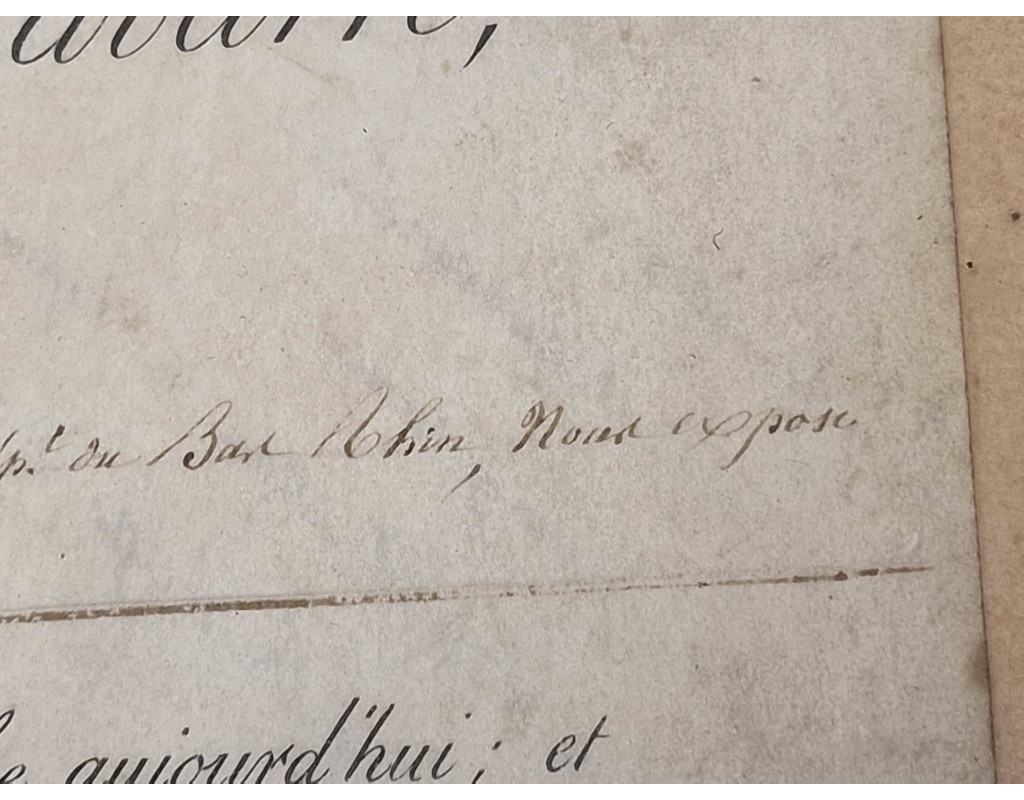 avarre,
dpt. du Bas Rhin, Nous expose
le aujourd'hui; et